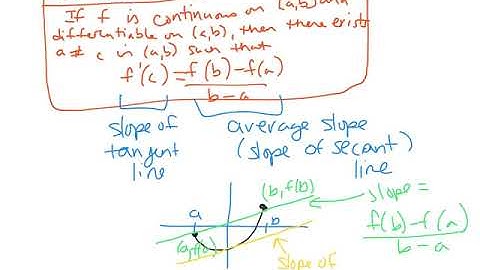 If f is continuous on (a,b) and
differentiable on (a,b), then there exists
a # c in (a,b) such that
f'(c) = f(b) - f(a)
b - a
slope of
tangent
line
average slope
(slope of secant)
line
(b, f(b))
slope =
f(b) - f(a)
b - a
a
b
(a, f(a))
slope of